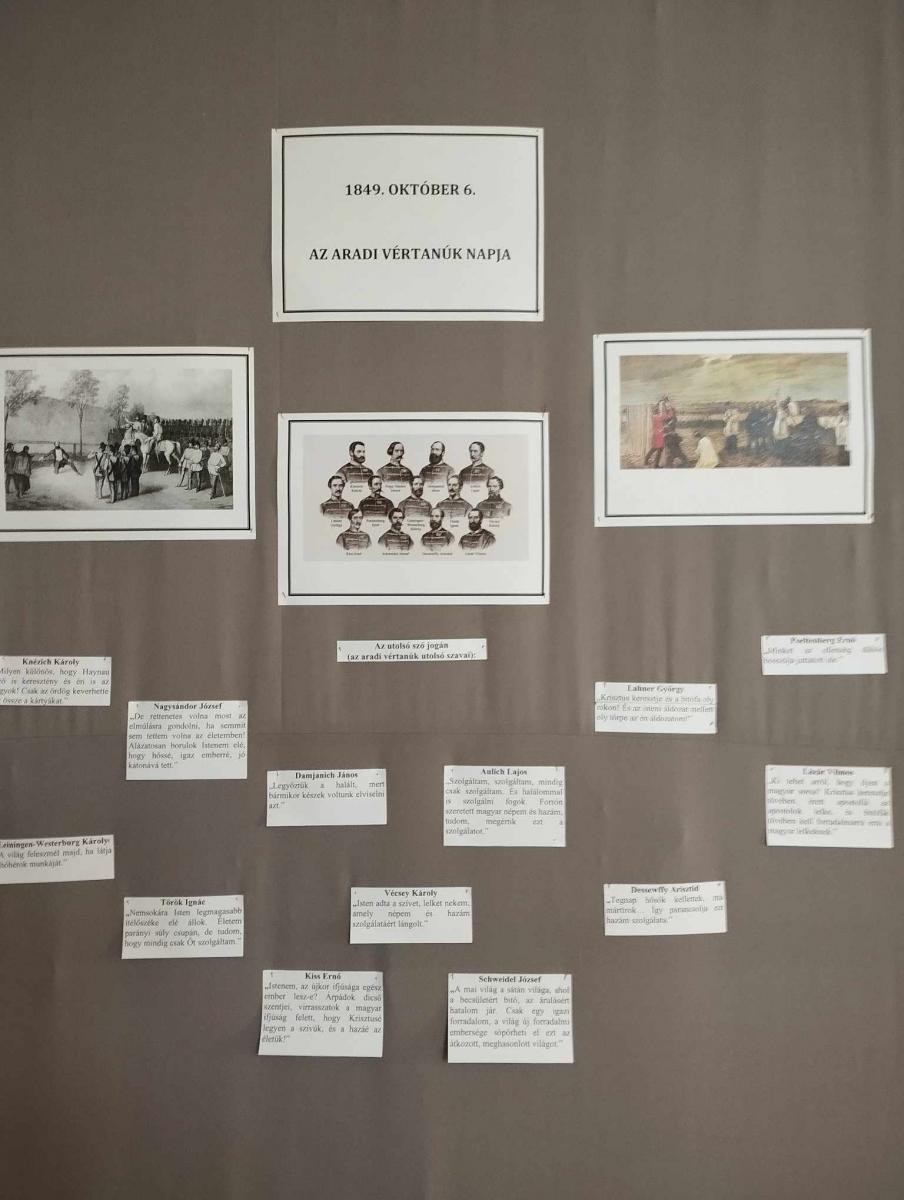 1849. OKTÓBER 6.
AZ ARADI VÉRTANÚK NAPJA
Az utolsó szó jogán
(az aradi vértanúk utolsó szavai):
Knézich Károly
Milyen különös, hogy Haynau
is keresztény és én is az
Csak az ördög keverhette
össze a kártyákat."
Nagysándor József
„De rettenetes volna most az
elmúlásra gondolni, ha semmit
sem tettem volna az életemben!
Alázatosan borulok Istenem elé,
hogy hőssé, igaz emberré, jó
katonává tett."
Damjanich János
„Legyőztük a halált, mert
bármikor készek voltunk elviselni
azt."
Aulich Lajos
„Szolgáltam, szolgáltam, mindig
csak szolgáltam. És halálommal
is szolgálni fogok. Forrón
szeretett magyar népem és hazám,
tudom, megértik ezt a
szolgálatot."
Lahner György
„Krisztus keresztje és a bitófa oly
rokon! És az isteni áldozat mellett
oly törpe az én áldozatom!"
Poeltenberg Ernő
„Minket az ellenség
bosszúja juttatott ide."
Lázár Vilmos
„Ki tehet arról, hogy ilyen a
magyar sorsa? Krisztus keresztje
tövében érett apostollá az
apostolok lelke, és bitófák
tövében kell forradalmárrá érni a
magyar lelkeknek."
Leiningen-Westerburg Károly:
A világ feleszmél majd, ha látja
hóhérok munkáját."
Török Ignác
„Nemsokára Isten legmagasabb
ítélőszéke elé állok. Életem
parányi súly csupán, de tudom,
hogy mindig csak Őt szolgáltam."
Vécsey Károly
„Isten adta a szívet, lelket nekem,
amely népem és hazám
szolgálatáért lángolt."
Dessewffy Arisztid
„Tegnap hősök kellettek, ma
mártírok... Így parancsolja ezt
hazám szolgálata."
Kiss Ernő
„Istenem, az újkor ifjúsága egész
ember lesz-e? Árpádok dicső
szentjei, virrasszatok a magyar
ifjúság felett, hogy Krisztusé
legyen a szívük, és a hazáé az
életük!"
Schweidel József
„A mai világ a sátán világa, ahol
a becsületért bitó, az árulásért
hatalom jár. Csak egy igazi
forradalom, a világ új forradalmi
embersége söpörheti el ezt az
átkozott, meghasonlott világot."